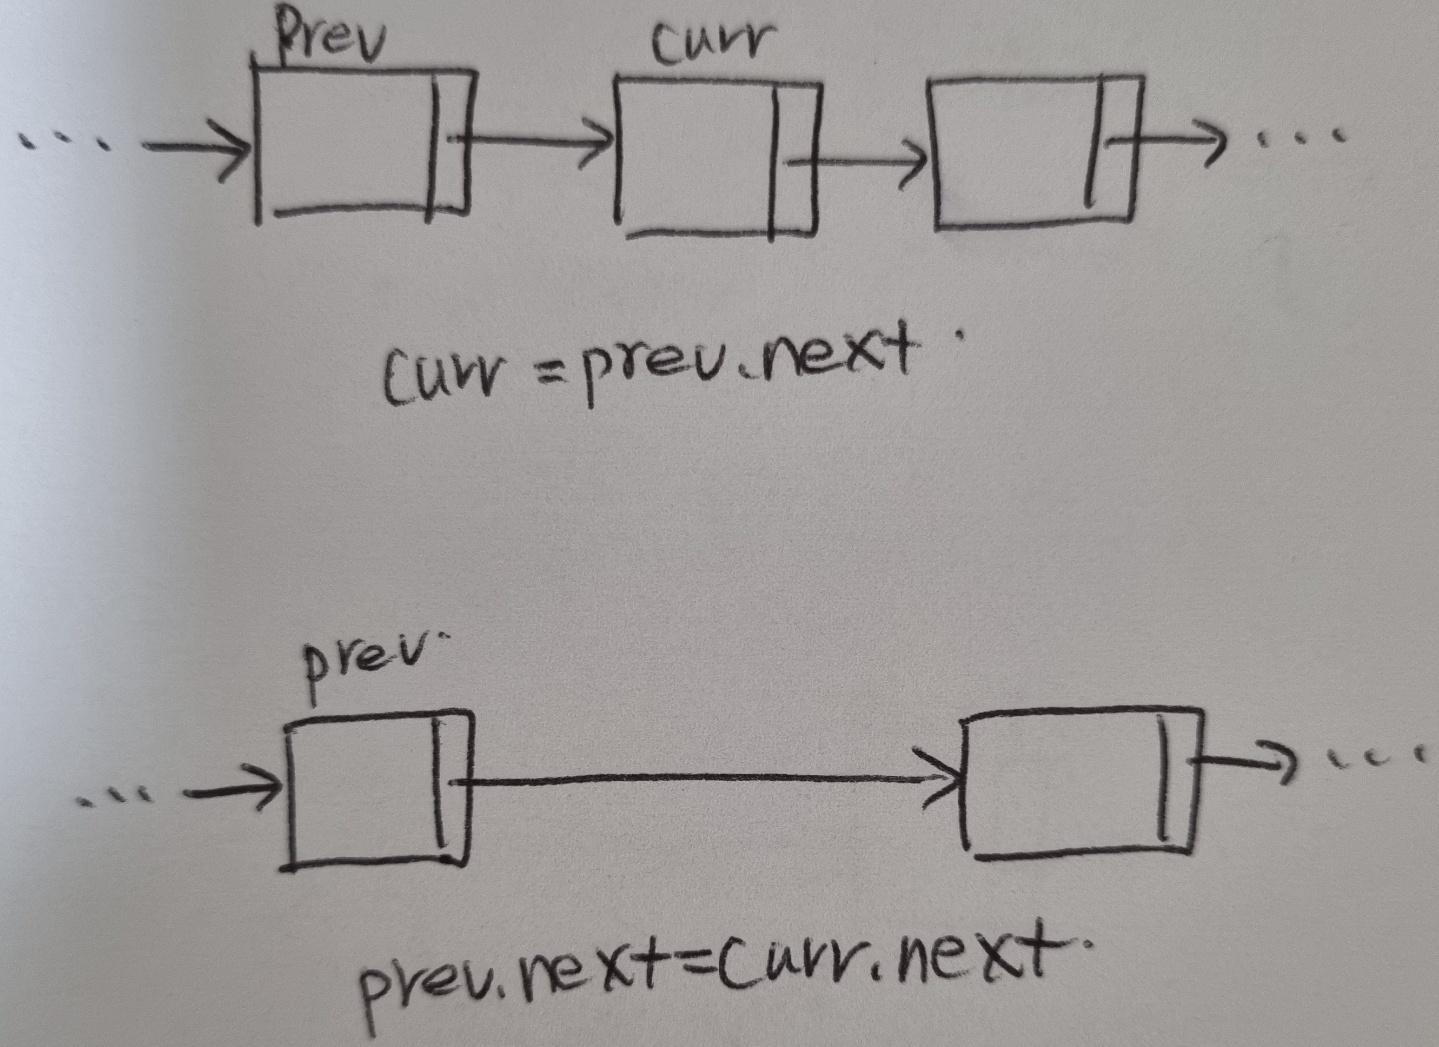 Prev curr
curr = prev.next
prev
prev.next=curr.next